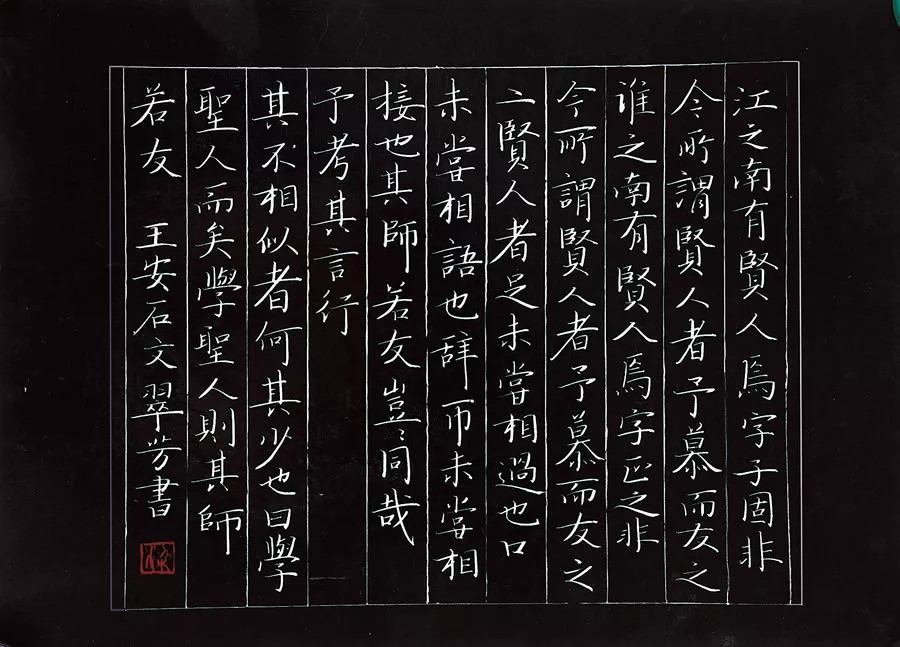 江之南有賢人焉字子固非
今所謂賢人者予慕而友之
淮之南有賢人焉字正之非
今所謂賢人者予慕而友之
二賢人者足未嘗相過也口
未嘗相語也辞币未嘗相
接也其師若友豈同哉
予考其言行
其不相似者何其少也曰學
聖人而矣學聖人則其師
若友 王安石文翠芳書